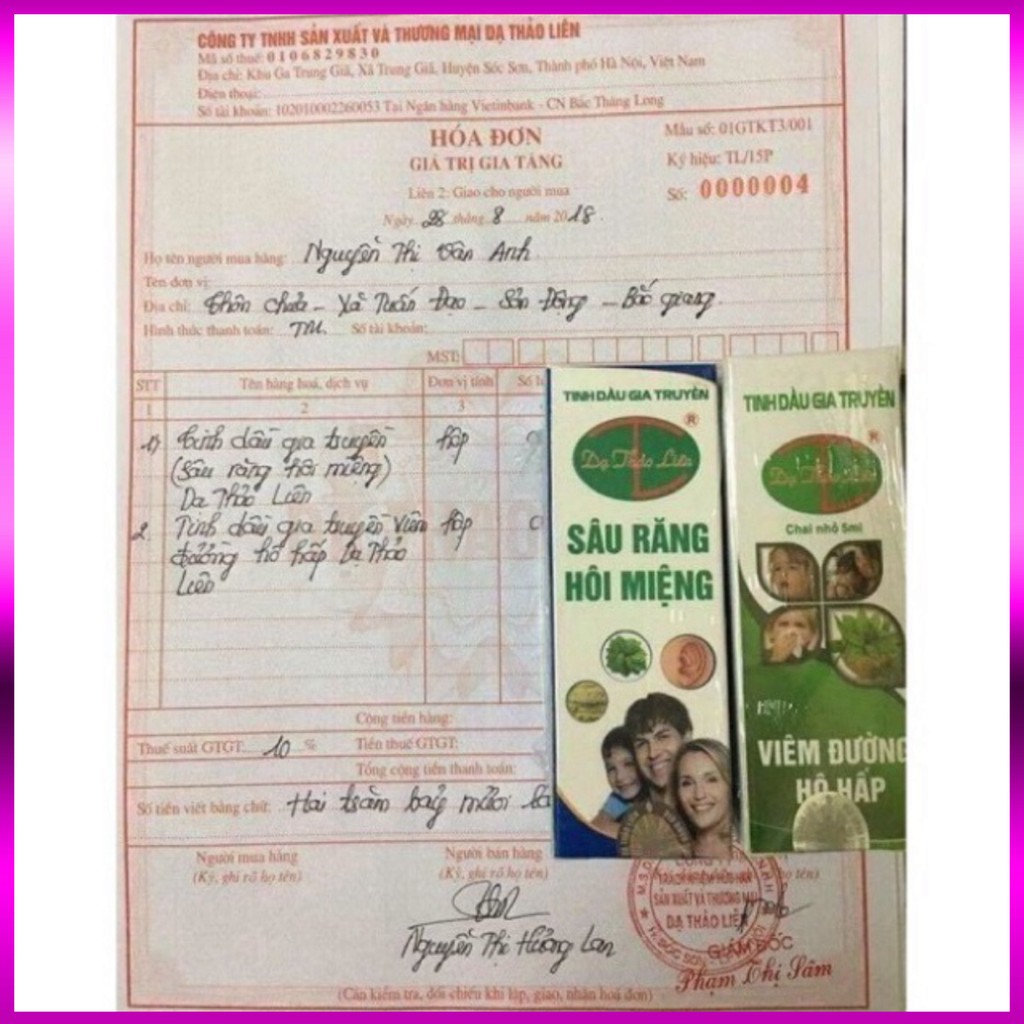 CÔNG TY TNHH SẢN XUẤT VÀ THƯƠNG MẠI DẠ THẢO LIÊN
Mã số thuế: 0106829830
Địa chỉ: Khu Ga Trung Giã, Xã Trung Giã, Huyện Sóc Sơn, Thành phố Hà Nội, Việt Nam
Điện thoại:
Số tài khoản: 102010002260053 Tại Ngân hàng Vietinbank - CN Bắc Thăng Long
HÓA ĐƠN
GIÁ TRỊ GIA TĂNG
Liên 2: Giao cho người mua
Ngày 28 tháng 8 năm 2018.
Mẫu số: 01GTKT3/001
Ký hiệu: TL/15P
Số: 0000004
Họ tên người mua hàng: Nguyễn Thị Vân Anh
Tên đơn vị:
Địa chỉ: Thôn Chùa - Xã Tuấn Đạo - Sơn Động - Bắc giang.
Hình thức thanh toán: TM. Số tài khoản:
MST:
STT Tên hàng hoá, dịch vụ Đơn vị tính Số
1 2 3
1) Tinh dầu gia truyền hộp
(Sâu răng hôi miệng)
Dạ Thảo Liên
2. Tinh dầu gia truyền viêm hộp
đường hô hấp Dạ Thảo
Liên
Cộng tiền hàng:
Thuế suất GTGT: 10 % Tiền thuế GTGT:
Tổng cộng tiền thanh toán:
Số tiền viết bằng chữ: Hai trăm bảy mươi
Người mua hàng
(Ký, ghi rõ họ tên)
Người bán hàng
(Ký, ghi rõ họ tên)
Nguyễn Thị Hương Lan
SẢN XUẤT VÀ THƯƠNG MẠI
DẠ THẢO LIÊN
GIÁM ĐỐC
Phạm Thị Sâm
(Cần kiểm tra, đối chiếu khi lập, giao, nhận hoá đơn)
TINH DẦU GIA TRUYỀN
Dạ Thảo Liên
®
SÂU RĂNG
HÔI MIỆNG
TINH DẦU GIA TRUYỀN
Dạ Thảo Liên
®
Chai nhỏ 5ml
VIÊM ĐƯỜNG
HÔ HẤP